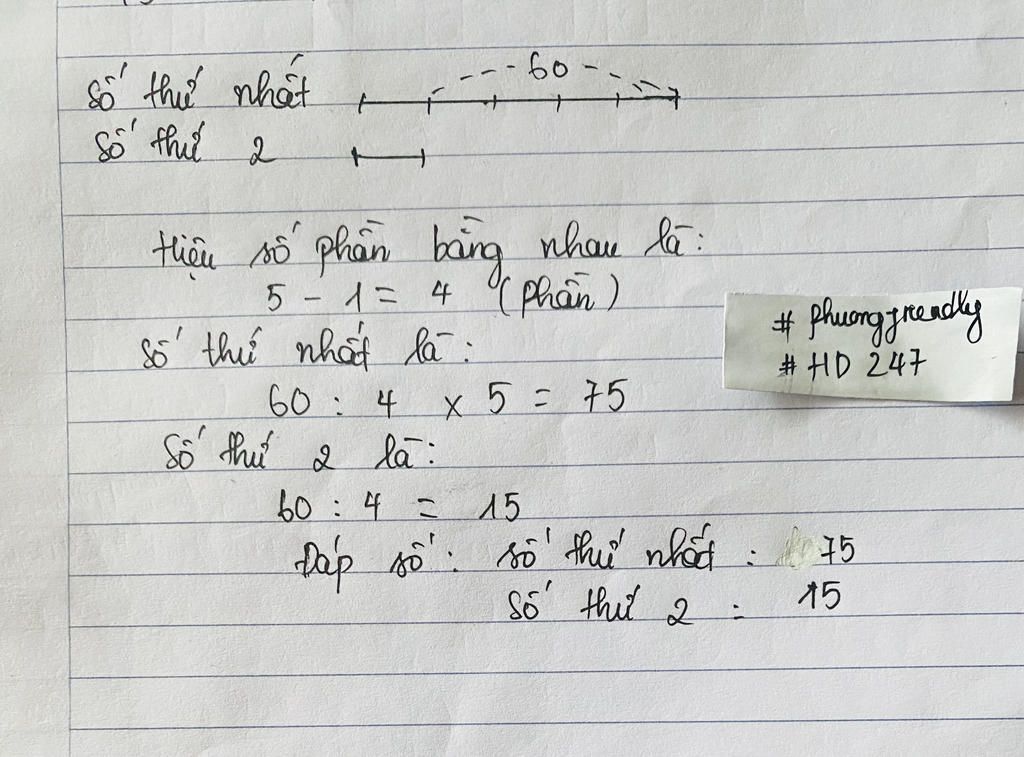 60
Số thứ nhất
Số thứ 2
Hiệu số phần bằng nhau là:
5 - 1 = 4 (phần)
Số thứ nhất là:
60 : 4 x 5 = 75
Số thứ 2 là:
60 : 4 = 15
Đáp số: số thứ nhất : 75
Số thứ 2 : 15
# phuongfriendly
# HD 247